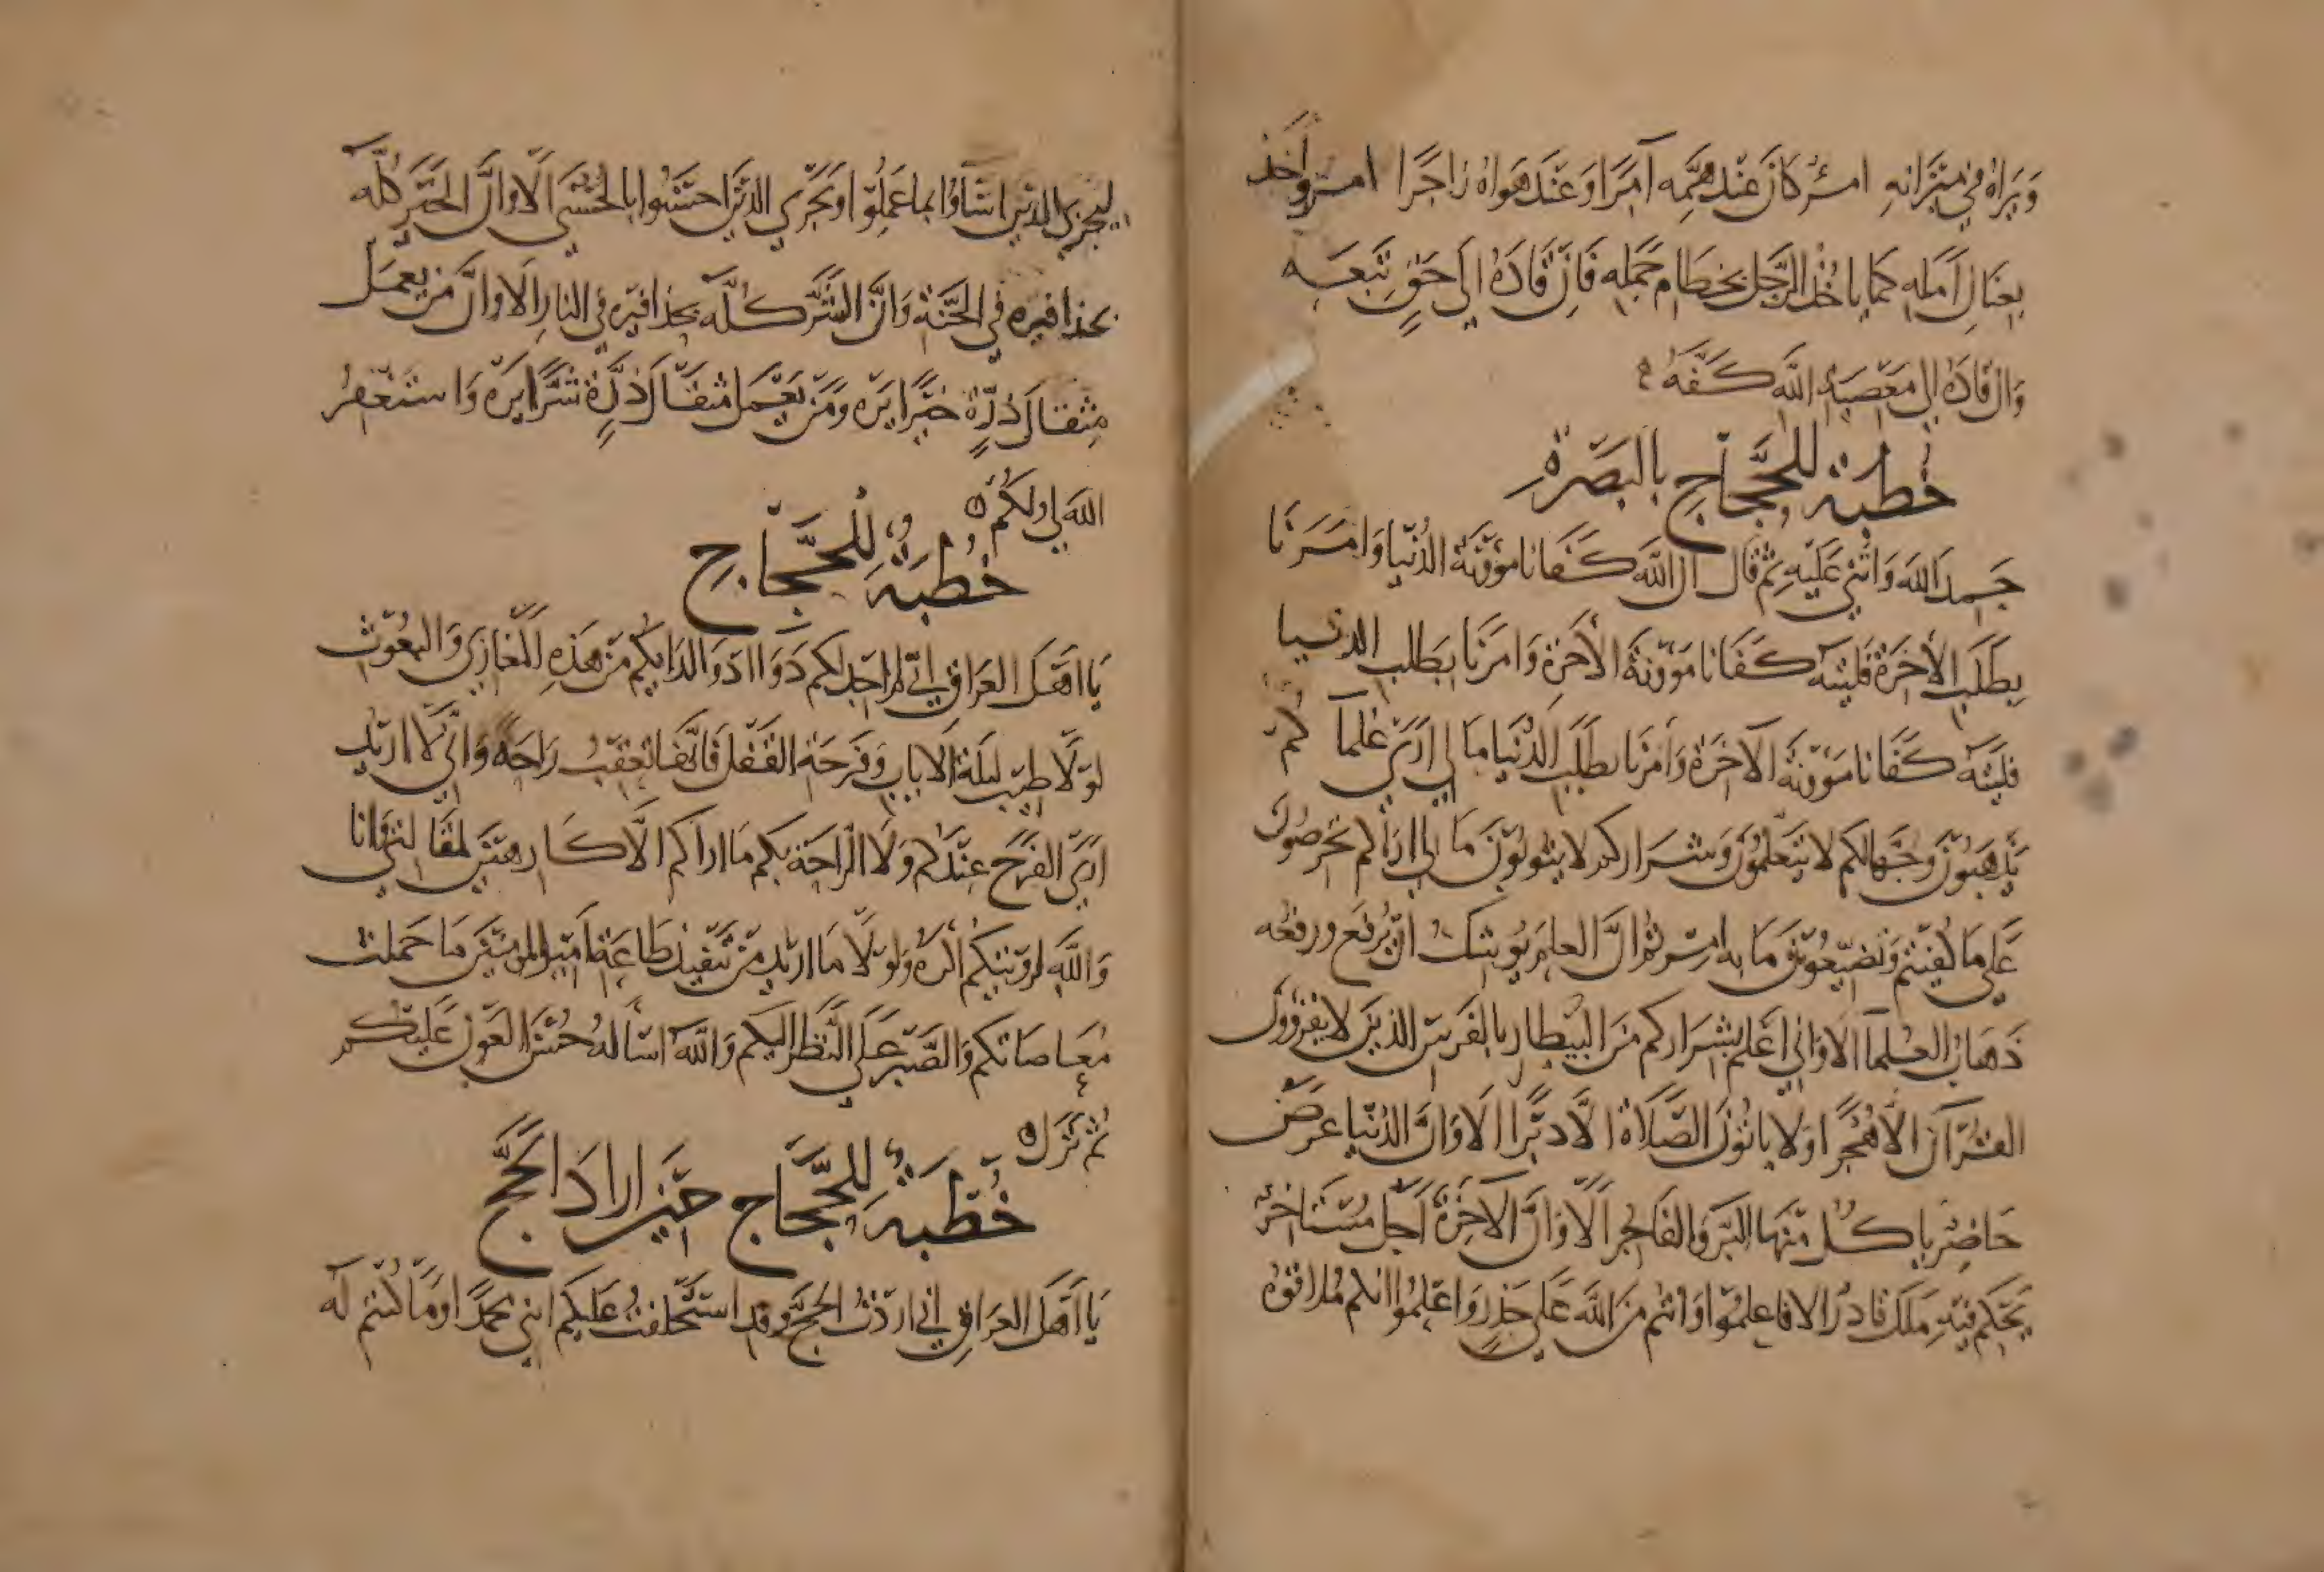 وَيَرَاهُ فِي مِيْزَانِهِ امرُؤ كانَ عنْدَ هَمِّهِ آمِرًا وَعَنْدَ هَوَاهُ زاجِرًا امرؤ اخذ
بِعِنَانِ اَمَلِهِ كَمَا ياخُذُ الرَّجُل بخطَام جَمَلِهِ فَاِنْ قَادَهُ الَى حَقٍّ تَبِعَه
وَان قادَهُ الى مَعْصِيَةِ اللَّهِ كَفَّهُ
خُطْبَة للحَجَّاجِ بِالبَصْرَةِ
حَمِدَ اللَّهَ وَاثْنَى عَلَيْهِ ثم قال ان اللَّهَ كَفَانَا مَؤُونَةَ الدُنْيَا وَامَرَنَا
بِطَلَبِ الاخرَة فَلَيْتَهُ كَفَانَا مَؤُونَةَ الأخِرَة وَامَرَنَا بِطَلَب الدنيا
فَلَيْتَهُ كَفَانَا مَؤُونَةَ الاخرَة وَامَرنَا بطَلَبِ الدُّنْيَا مَا لي ارَى عُلمآ كُم
يَذْهَبُوْنَ وَجُهَّالكُم لا يَتَعَلَّمُونَ وَشرَاركم لا يتوبُوْنَ مَا لي اراكم تحرصُونَ
عَلى مَا كُفِيْتُم وَتُضَيِّعُوْنَ مَا به امِرْتم انَّ العلم يُوشكُ ان يُرْفَع ورفعُه
ذَهَابُ العُلمآ الاوَاني اعْلم بشرَاركم مِنَ البَيْطار بالفَرَسِ الذينَ لا يقرؤون
القُرْآن الا هُجْرًا وَلا ياتُونَ الصَّلَاة الَّا دبْرًا الَا وَانَّ الدُنْيَا عرَضٌ
حَاضِرٌ ياكُلُ مِنْهَا البَرُّ وَالفَاجِرُ الَا وَانَّ الآخِرَةَ اجَلٌ مُسْتَاخرٌ
يَحْكم فيهِ مَلكٌ قادرٌ الا فاعلمُوا وَانتُم مِنَ اللَّه عَلى حَذَرٍ وَاعْلمُوا انكم مُلاقوْهُ
ليجزي الذين اسَاؤا بما عَمِلُوْا وَيَجْزِي الذيْنَ احْسَنُوا بالحُسْنَى الَا وَانَّ الخيْرَ كُلَّه
بحذافيره في الجَنَّة وَانَّ الشَّرَّ كلَّهُ بحذافيْره في النارِ الا وانَّ مَن يعمَل
مِثقالَ ذرَّةٍ خيْرًا يَرَه ومَن يَعْمَل مثقَالَ ذَرَّةٍ شرًّا يَرَه وَاستغفرُ
اللهَ لي ولكُمْ ه
خُطْبَةٌ لِلْحَجَّاجِ
يَا اَهْلَ العرَاقِ اِنِّي لم اجِد لكم دَوَاءً ادْوَا لدَايكم مِنْ هَذِهِ المغَازِي وَالبعُوْثِ
لَوْلَا طِيْب لَيلَة الايَابِ وَفَرحَة القَفْل فَانَّهَا تعْقب رَاحَةً وَانِّي لَا اريْد
ارَى الفرَحَ عِنْدكُم وَلَا الرَّاحَة بكم ما اراكم الَّا كارهيْنَ لمقَالتي وَانا
وَاللَّهِ لرؤيتِكُم اكْرَهُ وَلَوْلَا مَا اريْد مِنْ تنْفيذ طاعَة اميْر المومنيْنَ مَا حَمَلت
مُعَاصَاتكم وَالصَّبْر عَلَى النَّظَر اليكم وَاللَّهَ اسْأَلهُ حُسْنَ العَوْن عَليْكم
ثُمَّ نَزَلَ ه
خُطْبَةٌ للحَجَّاجِ حِيْنَ ارَادَ الحَجَّ
يَا اَهْلَ العرَاقِ انِّي ارَدْتُ الحَجَّ وَقد اسْتَخلفتُ عَليكم ابني محمدًا وَمَا كُنتم لَه